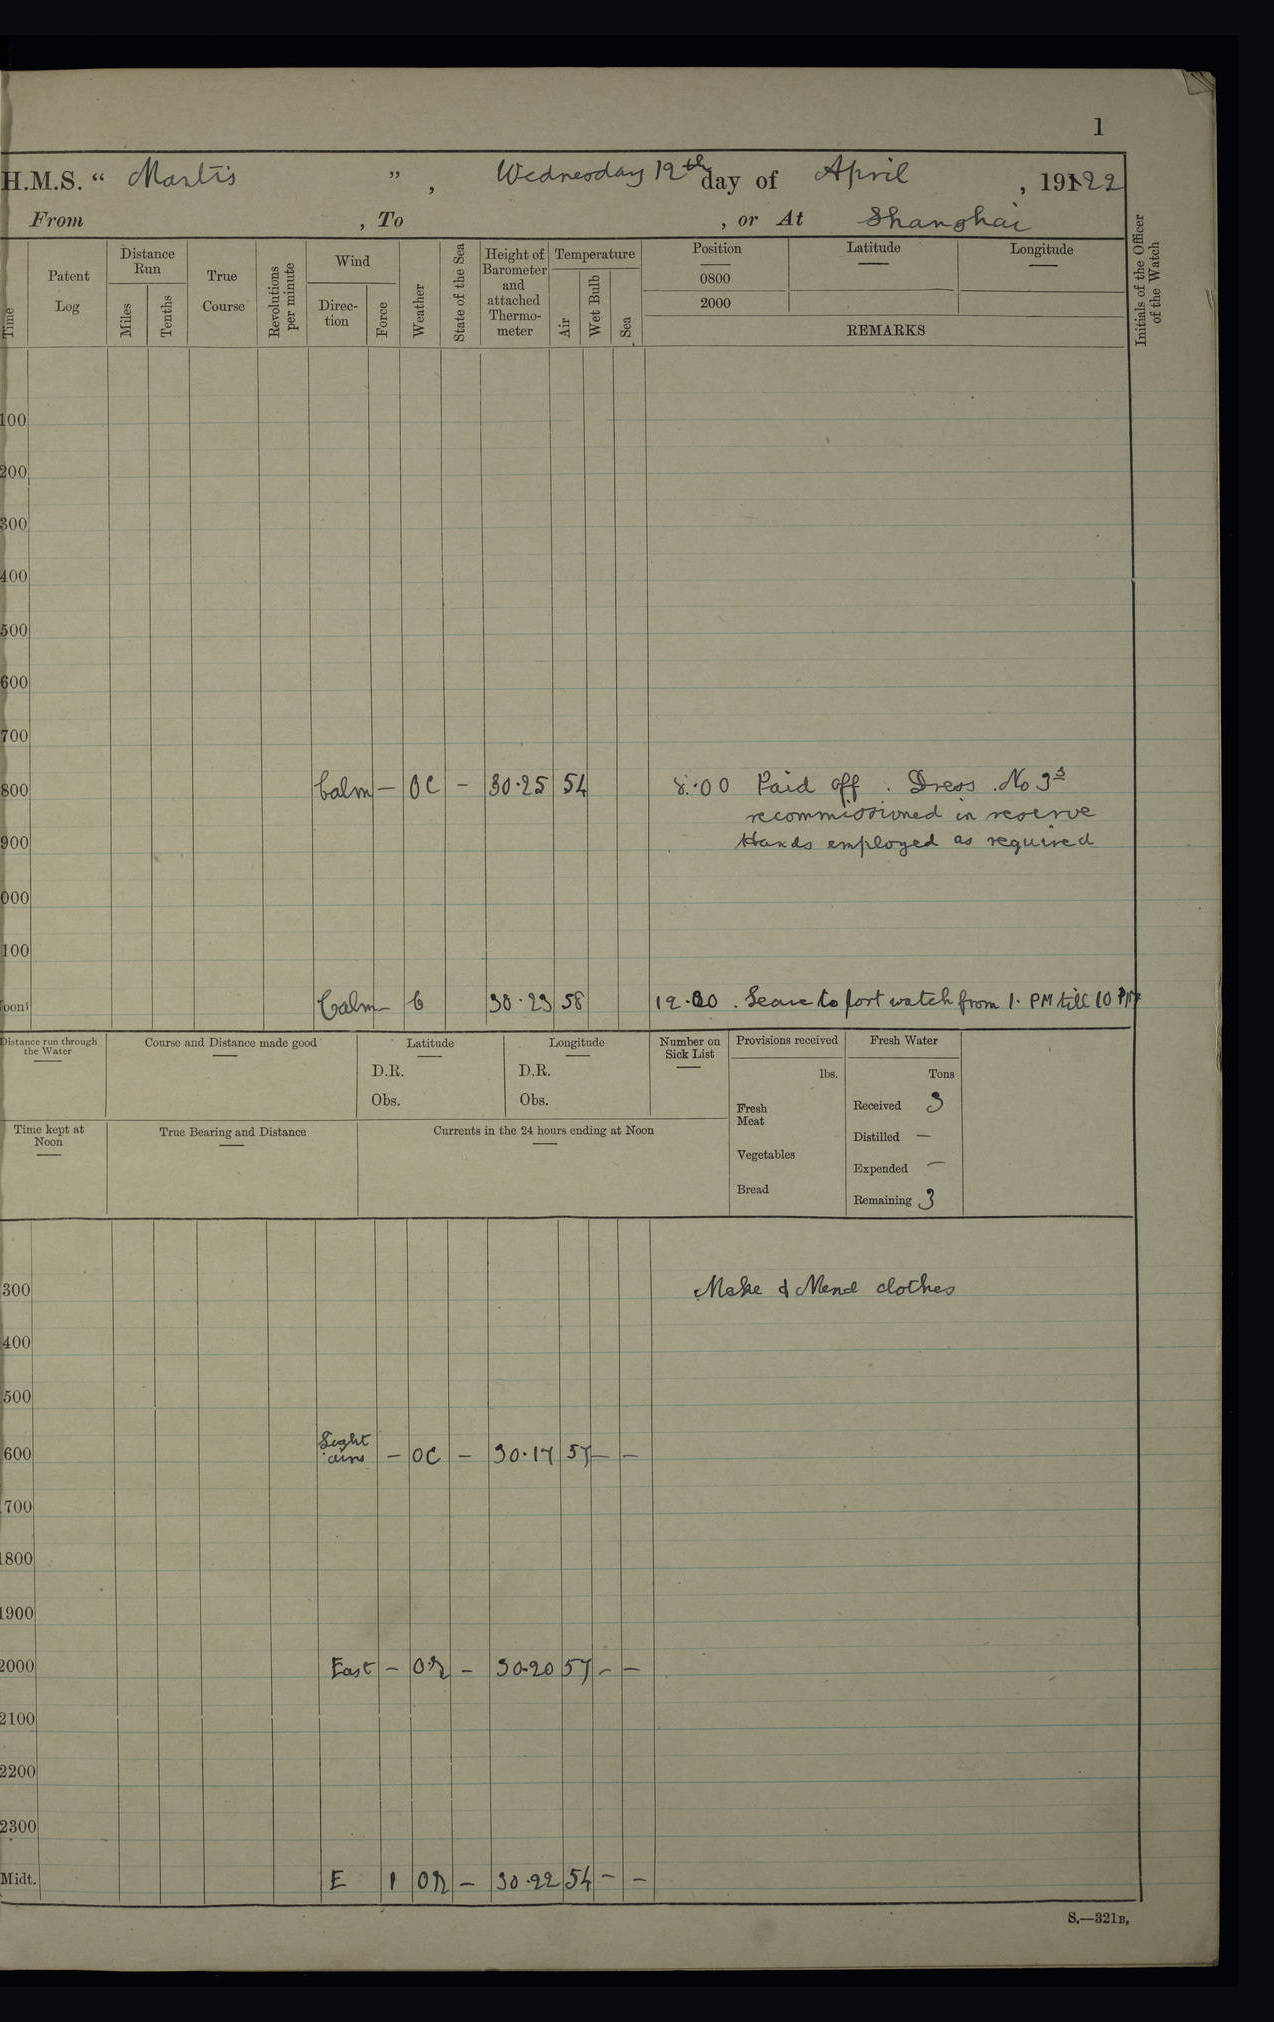 1
H.M.S. “ Mantis ” , Wednesday 12th day of April , 1922
From , To , or At Shanghai
Time
Patent Log
Distance Run
Miles
Tenths
True Course
Revolutions per minute
Wind
Direc-tion
Force
Weather
State of the Sea
Height of Barometer and attached Thermo-meter
Temperature
Air
Wet Bulb
Sea
Position
0800
2000
Latitude
Longitude
REMARKS
Initials of the Officer of the Watch
100
200
300
400
500
600
700
800 Calm — OC — 30·25 54 8.00 Paid off . Dress . No 3s
recommissioned in reserve
900 Hands employed as required
000
100
oon Calm — C 30·23 58 12.00 . Leave to port watch from 1. PM till 10 PM
Distance run through the Water
Course and Distance made good
Latitude
D.R.
Obs.
Longitude
D.R.
Obs.
Number on Sick List
Provisions received
lbs.
Fresh Meat
Vegetables
Bread
Fresh Water
Tons
Received 3
Distilled —
Expended —
Remaining 3
Time kept at Noon
True Bearing and Distance
Currents in the 24 hours ending at Noon
300 Make & Mend clothes
400
500
600 Light airs — OC — 30·17 57 — —
700
1800
1900
2000 East — OR — 30·20 57 — —
2100
2200
2300
Midt. E 1 OR — 30·22 54 — —
S.—321B,